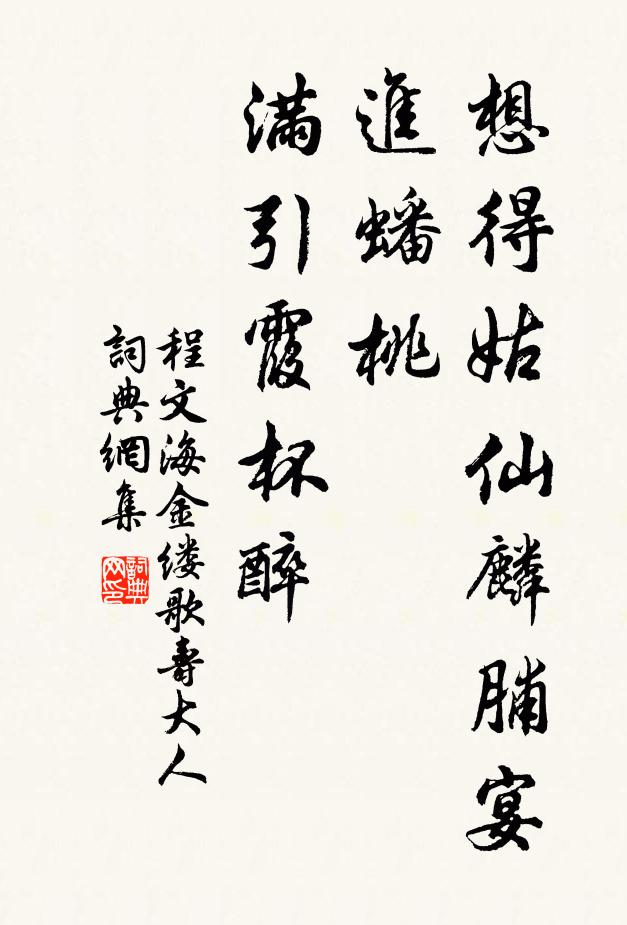 想得姑仙麟脯宴
進蟠桃
滿引霞杯醉
程文海金缕歌壽大人
詞典網集
詞典網印